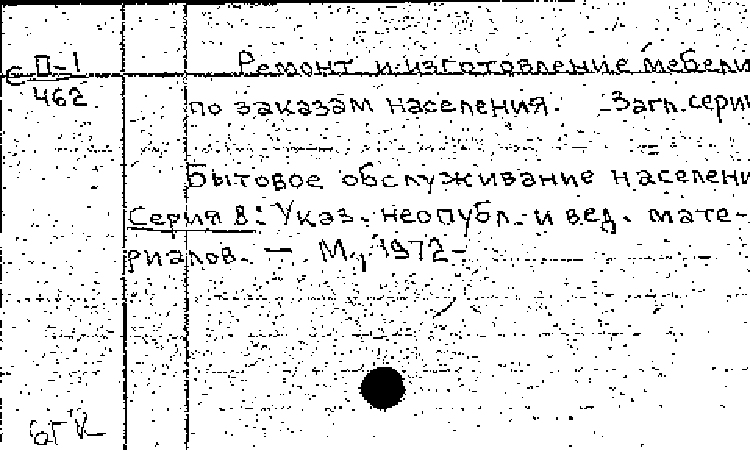 С П-1
462
Ремонт и изготовление мебели
по заказам населения. - Загл. серии
Бытовое обслуживание населени
Серия 8: Указ. неопубл. и вед. мате-
риалов. — М., 1972-